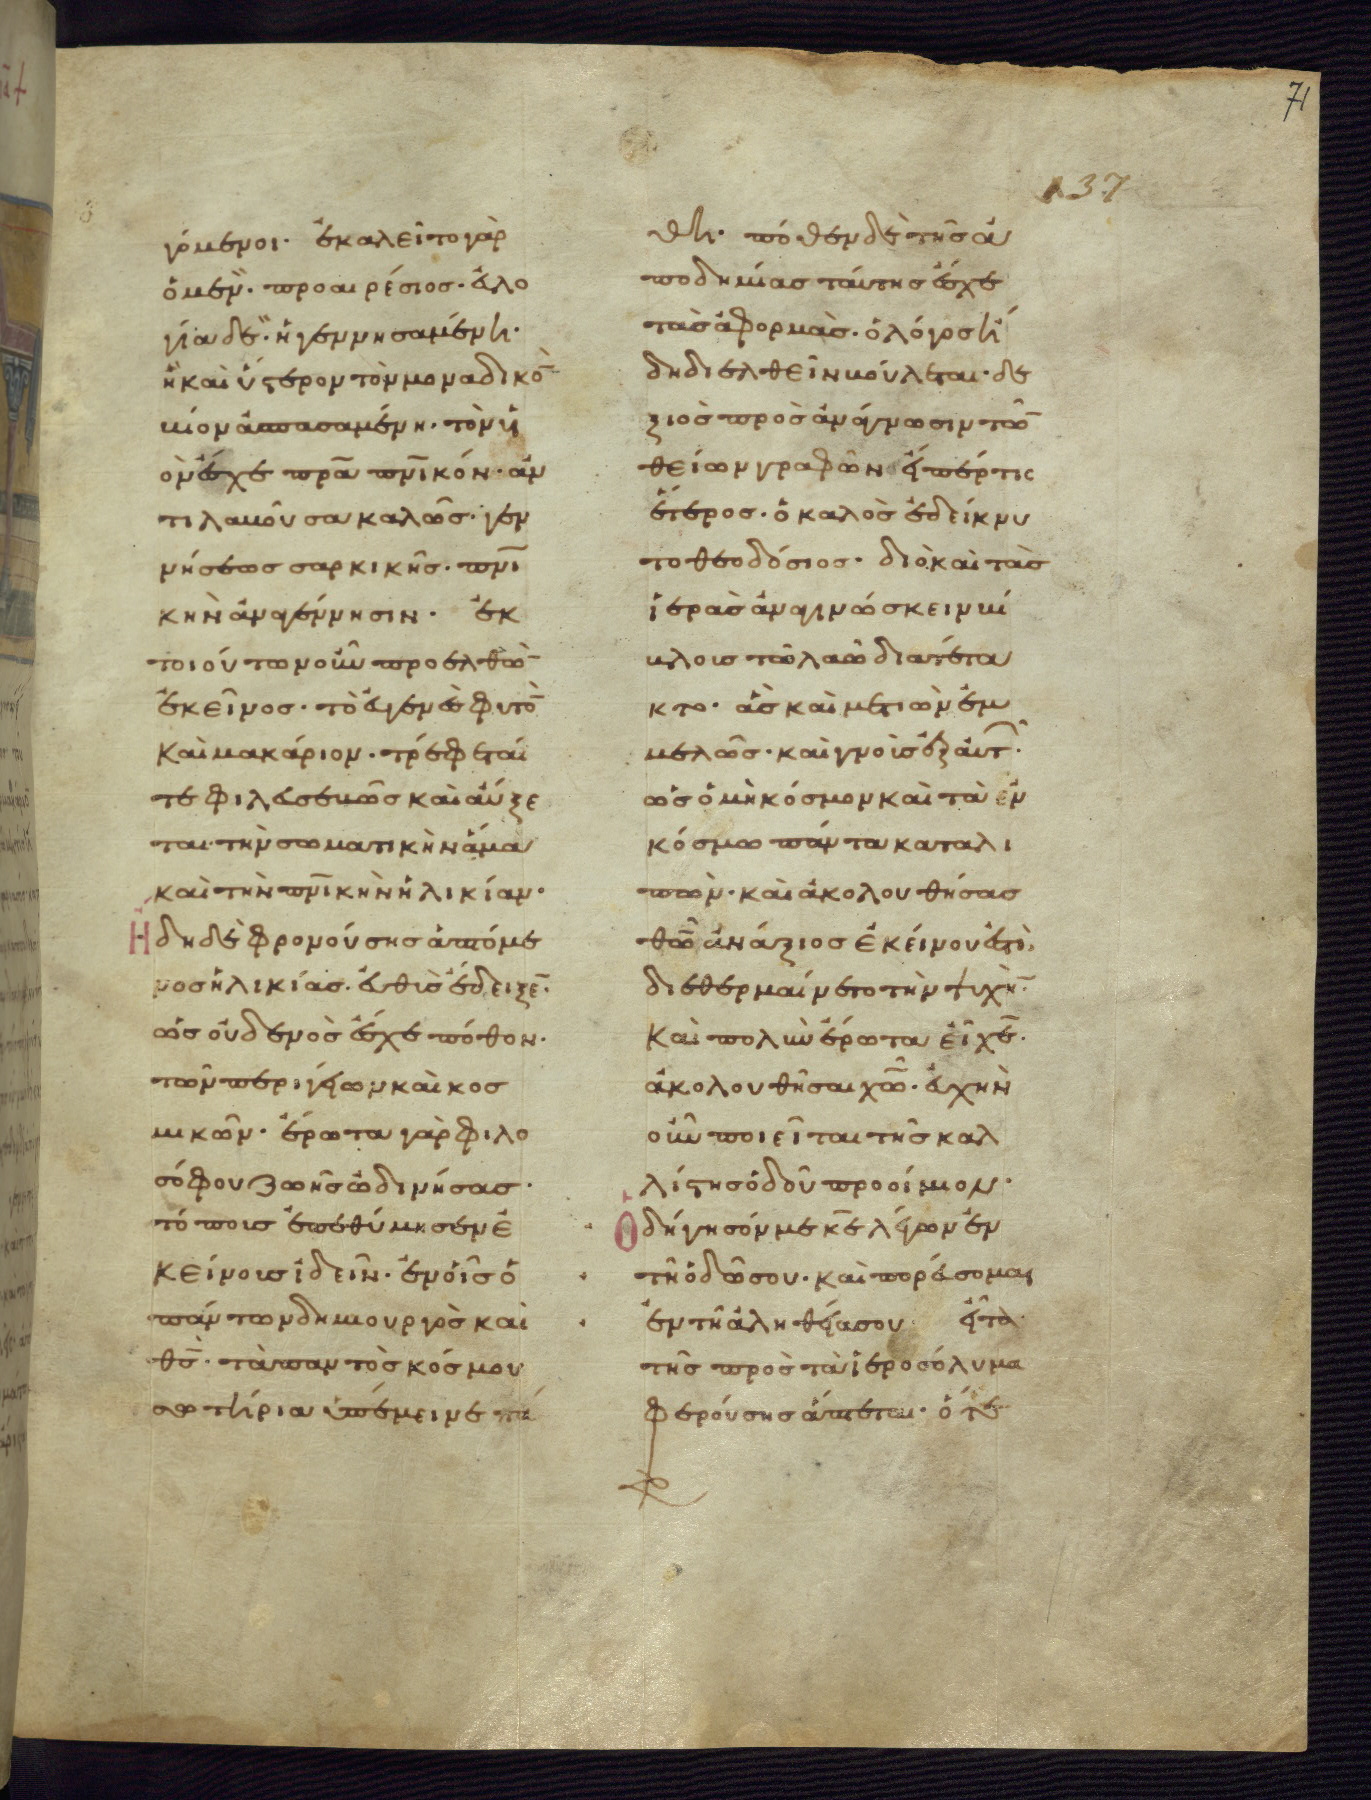 71
137
γόμενοι· ἐκαλεῖτο γὰρ
ὁ μὲν· προαιρέσιος· εὐλο
γία δὲ· ἡ γεννησαμένη·
ἣ καὶ ὕστερον τὸν μοναδικὸ̅
βίον ἀσπασαμένη· τὸν ὑ
ὸν ἔσχε πρ̅α πν̅ικόν· ἀν
τιλαβοῦσα καλῶς· γεν
νήσεως σαρκικῆς· πν̅ι
κὴν ἀναγέννησιν· ἐκ
τοιούτων οὖν προελθὼ̅
ἐκεῖνος· τὸ εὐγενὲς φυτὸ̅
καὶ μακάριον· τρέφεταί
τε φιλευσεβῶς καὶ αὔξε
ται· τὴν σωματικὴν ἅμα
καὶ τὴν πν̅ικὴν ἡλικίαν·
Ἤδη δὲ φρονούσης ἁπτόμε
νος ἡλικίας· εὐθὺς ἔδειξε̅·
ὡς οὐδενὸς ἔσχε πόθον·
τῶν περιγείων καὶ κοσ
μικῶν· ἔρωτα γὰρ φιλο
σόφου ζωῆς ὠδινήσας·
τόποις ἐπεθύμησεν ἐ
κείνοις ἰδεῖν· ἐν οἷς ὁ
πάντων δημιουργὸς καὶ
θς̅· τὰ παντὸς κόσμου
σωτήρια ὑπέμεινε πά
θη· πόθεν δὲ τῆς ἀ
ποδημίας ταύτης ἔσχε
τὰς ἀφορμὰς· ὁ λόγος ἤ
δη διελθεῖν βούλεται· δε
ξιὸς πρὸς ἀνάγνωσιν τῶ̅
θείων γραφῶν εἴπέρ τις
ἕτερος· ὁ καλὸς ἐδείκνυ
το θεοδόσιος· διὸ καὶ τὰς
ἱερὰς ἀναγινώσκειν βί
βλοις τῶ λαῶ διατέτα
κτο· ἃς καὶ μετιὼν ἐμ
μελῶς· καὶ γνοὺς ἐξ αὐτῶ̅·
ὡς ὁ μὴ κόσμον καὶ τὰ ἐν
κόσμω πάντα καταλι
πὼν· καὶ ἀκολουθήσας
θῶ̅ ἀνάξιος ἐκείνου ἐστὶ·
διεθερμαίνετο τὴν ψυχὴ̅·
καὶ πολὺν ἔρωτα εἶχε̅·
ἀκολουθῆσαι χῶ̅· εὐχὴν
οὖν ποιεῖται τῆς καλ
λίστης ὁδοῦ προοίμιον·
Ὁδήγησόν με κ̅ε λέγων ἐν
τῆ ὁδῶ σου· καὶ πορεύσομαι
ἐν τῆ ἀληθεία σου· εἶτα
τῆς πρὸς τὰ ἱεροσόλυμα
φερούσης ἅπτεται· ὅτε